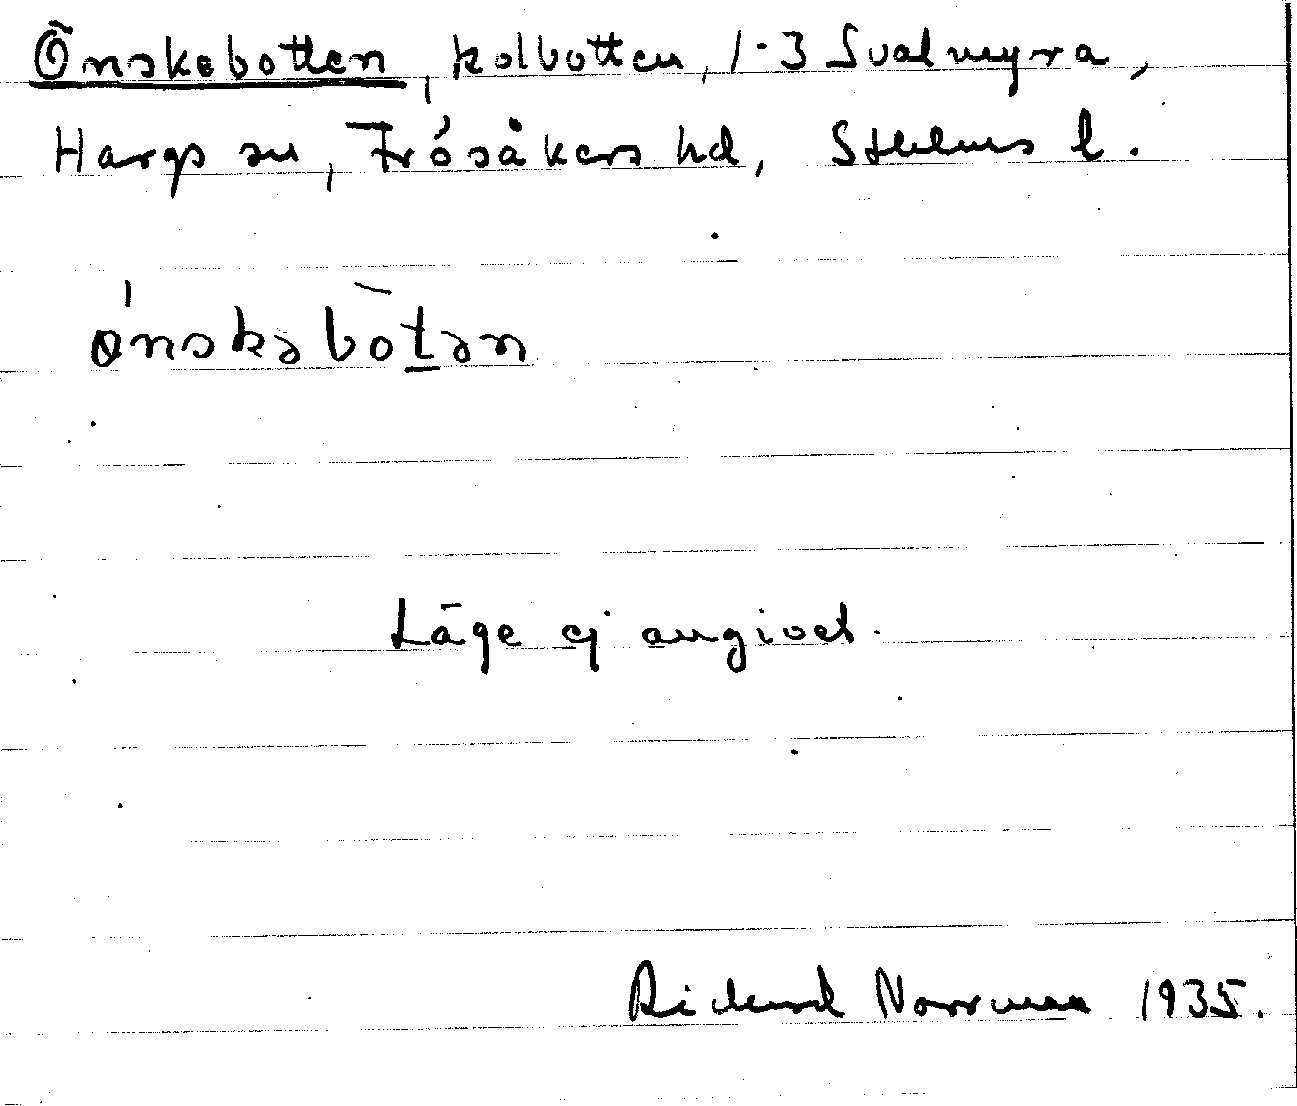 Önskebotten, kolbotten, 1-3 Svalmyra,
Hargs sn, Frösåkers hd, Sthlms l.
ønskəbòtən
Läge ej angivet.
Richard Norrman 1935.